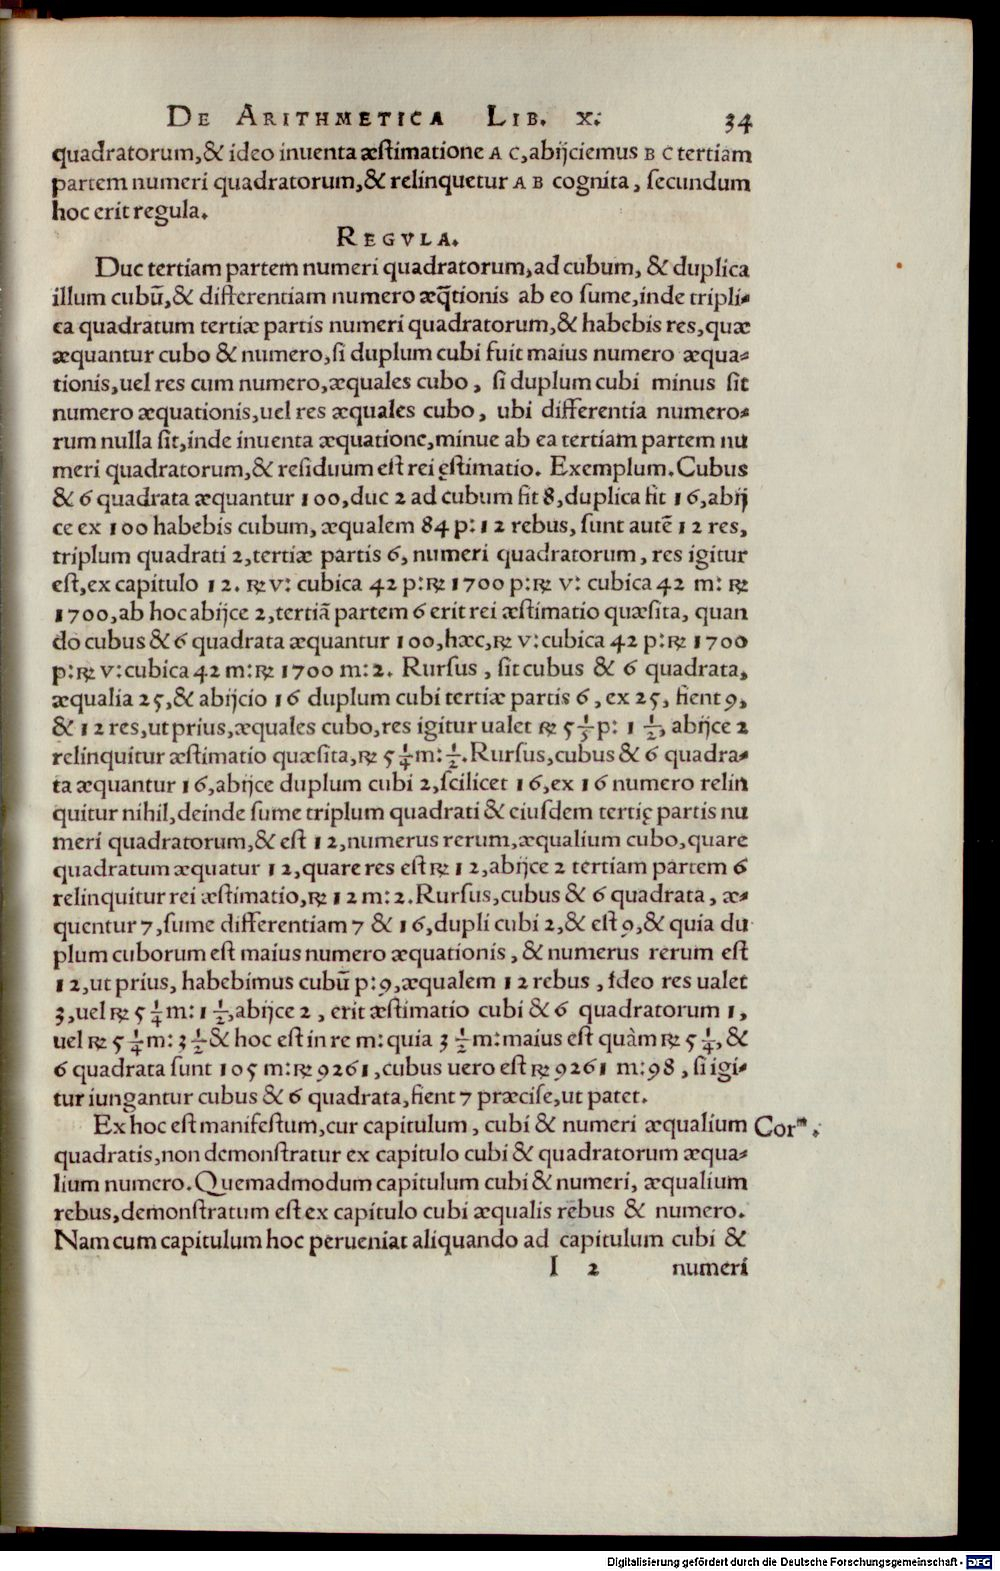 DE ARITHMETICA LIB. X. 34
quadratorum,& ideo inuenta æstimatione A C,abijciemus B C tertiam
partem numeri quadratorum,& relinquetur A B cognita, secundum
hoc erit regula.
REGVLA.
Duc tertiam partem numeri quadratorum,ad cubum, & duplica
illum cubū,& differentiam numero æq̃tionis ab eo sume,inde tripli-
ca quadratum tertiæ partis numeri quadratorum,& habebis res,quæ
æquantur cubo & numero,si duplum cubi fuit maius numero æqua-
tionis,uel res cum numero,æquales cubo, si duplum cubi minus sit
numero æquationis,uel res æquales cubo, ubi differentia numero-
rum nulla sit,inde inuenta æquatione,minue ab ea tertiam partem nu
meri quadratorum,& residuum est rei ęstimatio. Exemplum.Cubus
& 6 quadrata æquantur 100,duc 2 ad cubum fit 8,duplica fit 16,abij
ce ex 100 habebis cubum, æqualem 84 p:12 rebus, sunt autē 12 res,
triplum quadrati 2,tertiæ partis 6, numeri quadratorum, res igitur
est,ex capitulo 12. ℞ v: cubica 42 p:℞ 1700 p:℞ v: cubica 42 m: ℞
1700,ab hoc abijce 2,tertiã partem 6 erit rei æstimatio quæsita, quan
do cubus & 6 quadrata æquantur 100,hæc,℞ v:cubica 42 p:℞ 1700
p:℞ v:cubica 42 m:℞ 1700 m:2. Rursus, sit cubus & 6 quadrata,
æqualia 25,& abijcio 16 duplum cubi tertiæ partis 6, ex 25, fient 9,
& 12 res,ut prius,æquales cubo,res igitur ualet ℞ 5 1/3 p: 1 1/2, abijce 2
relinquitur æstimatio quæsita,℞ 5 1/4 m: 1/2. Rursus,cubus & 6 quadra-
ta æquantur 16,abijce duplum cubi 2,scilicet 16,ex 16 numero relin
quitur nihil,deinde sume triplum quadrati & eiusdem tertię partis nu
meri quadratorum,& est 12,numerus rerum,æqualium cubo,quare
quadratum æquatur 12,quare res est ℞ 12,abijce 2 tertiam partem 6
relinquitur rei æstimatio,℞ 12 m:2. Rursus,cubus & 6 quadrata, æ-
quentur 7,sume differentiam 7 & 16,dupli cubi 2,& est 9,& quia du
plum cuborum est maius numero æquationis, & numerus rerum est
12,ut prius, habebimus cubū p:9,æqualem 12 rebus, ideo res ualet
3,uel ℞ 5 1/4 m: 1 1/2,abijce 2, erit æstimatio cubi & 6 quadratorum 1,
uel ℞ 5 1/4 m: 3 1/2 & hoc est in re m: quia 3 1/2 m: maius est quàm ℞ 5 1/4, &
6 quadrata sunt 105 m:℞ 9261,cubus uero est ℞ 9261 m:98, si igi-
tur iungantur cubus & 6 quadrata,fient 7 præcise,ut patet.
Ex hoc est manifestum,cur capitulum, cubi & numeri æqualium Corᵐ.
quadratis,non demonstratur ex capitulo cubi & quadratorum æqua-
lium numero. Quemadmodum capitulum cubi & numeri, æqualium
rebus,demonstratum est ex capitulo cubi æqualis rebus & numero.
Nam cum capitulum hoc perueniat aliquando ad capitulum cubi &
I 2 numeri
Digitalisierung gefördert durch die Deutsche Forschungsgemeinschaft - DFG